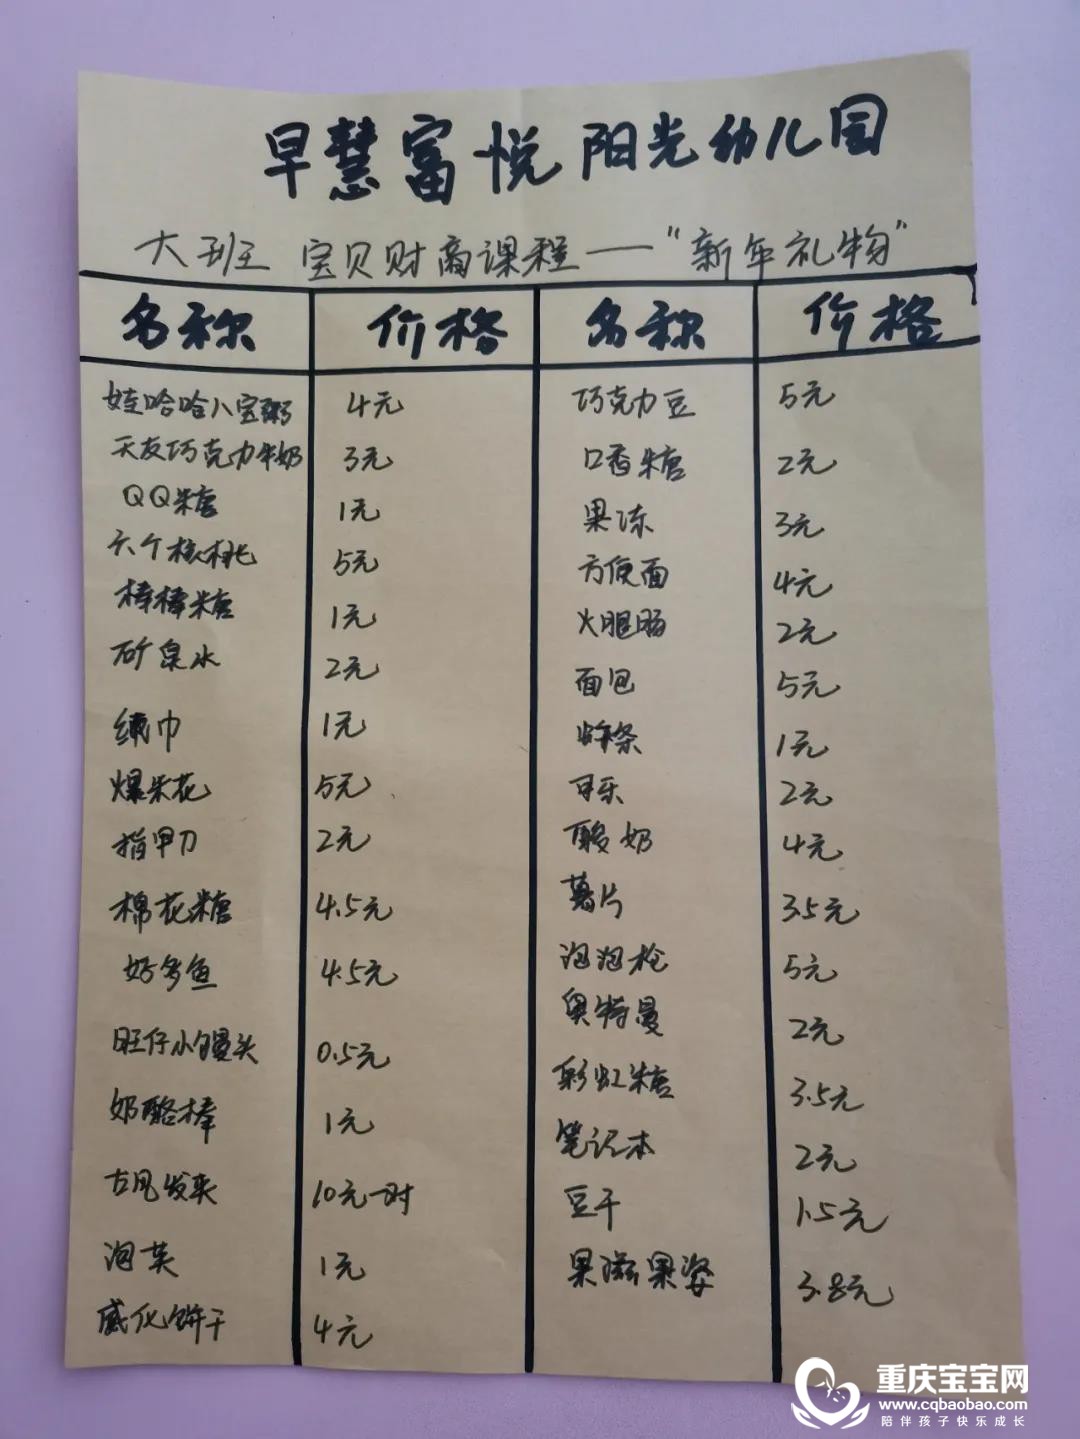 早慧富悦阳光幼儿园
大班 宝贝财商课程——"新年礼物"
名称 价格 名称 价格
娃哈哈八宝粥 4元 巧克力豆 5元
天友巧克力牛奶 3元 口香糖 2元
QQ糖 1元 果冻 3元
六个核桃 5元 方便面 4元
棒棒糖 1元 火腿肠 2元
矿泉水 2元 面包 5元
纸巾 1元 条 1元
爆米花 5元 可乐 2元
指甲刀 2元 酸奶 4元
棉花糖 4.5元 薯片 3.5元
好多鱼 4.5元 泡泡枪 5元
旺仔小馒头 0.5元 奥特曼 2元
奶酪棒 1元 彩虹糖 3.5元
古风发夹 10元一对 笔记本 2元
泡芙 1元 豆干 1.5元
威化饼干 4元 果滋果姿 3.8元
重庆宝宝网
www.cqbaobao.com
陪伴孩子快乐成长